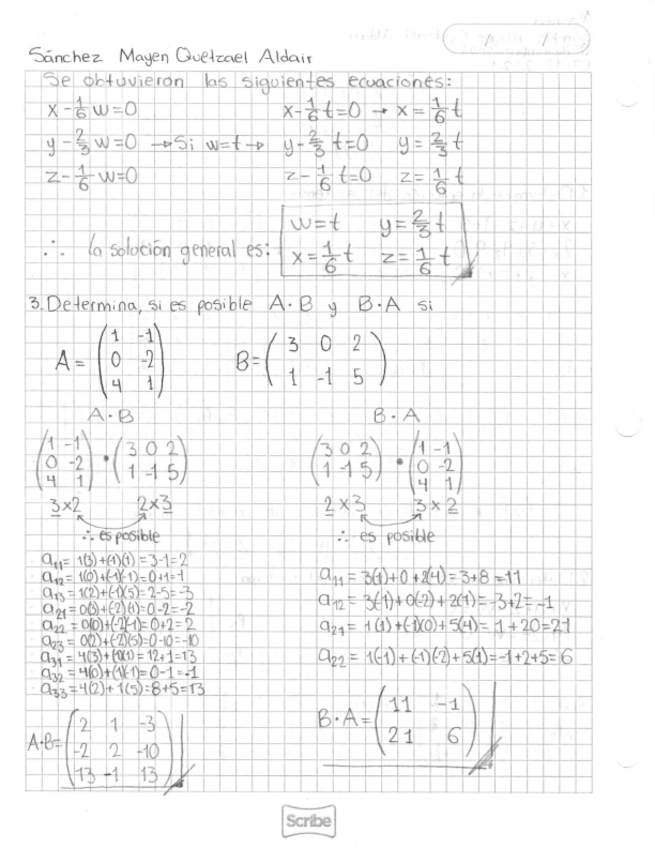 Sánchez Mayen Quetzael Aldair
Se obtuvieron las siguientes ecuaciones:
x - 1/6 w = 0 x - 1/6 t = 0 → x = 1/6 t
y - 2/3 w = 0 → Si w = t → y - 2/3 t = 0 y = 2/3 t
z - 1/6 w = 0 z - 1/6 t = 0 z = 1/6 t
w = t y = 2/3 t
∴ la solución general es: x = 1/6 t z = 1/6 t
3. Determina, si es posible A·B y B·A si
A = (1 -1
0 -2
4 1)
B = (3 0 2
1 -1 5)
A·B
(1 -1
0 -2
4 1) · (3 0 2
1 -1 5)
3x2 2x3
∴ es posible
a11 = 1(3)+(-1)(1)=3-1=2
a12 = 1(0)+(-1)(-1)=0+1=1
a13 = 1(2)+(-1)(5)=2-5=-3
a21 = 0(3)+(-2)(1)=0-2=-2
a22 = 0(0)+(-2)(-1)=0+2=2
a23 = 0(2)+(-2)(5)=0-10=-10
a31 = 4(3)+(1)(1)=12+1=13
a32 = 4(0)+(1)(-1)=0-1=-1
a33 = 4(2)+1(5)=8+5=13
A·B = (2 1 -3
-2 2 -10
13 -1 13)
B·A
(3 0 2
1 -1 5) · (1 -1
0 -2
4 1)
2x3 3x2
∴ es posible
a11 = 3(1)+0+2(4)=3+8=11
a12 = 3(-1)+0(-2)+2(1)=-3+2=-1
a21 = 1(1)+(-1)(0)+5(4)=1+20=21
a22 = 1(-1)+(-1)(-2)+5(1)=-1+2+5=6
B·A = (11 -1
21 6)
Scribe